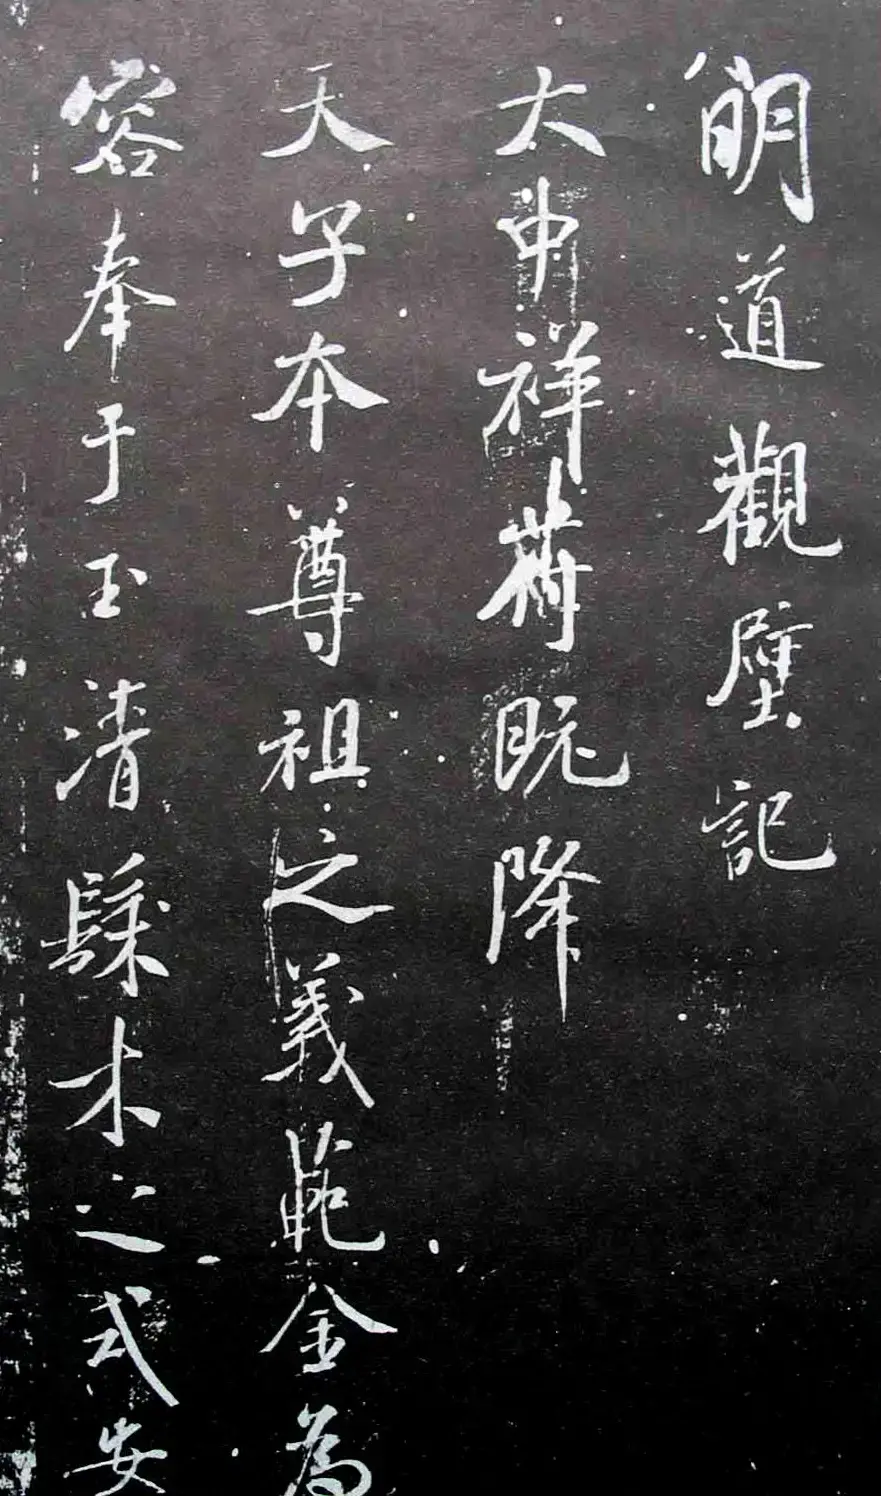 明道觀壁記
大中祥符既降
天子本尊祖之義範金為
容奉于玉清髹木之式安